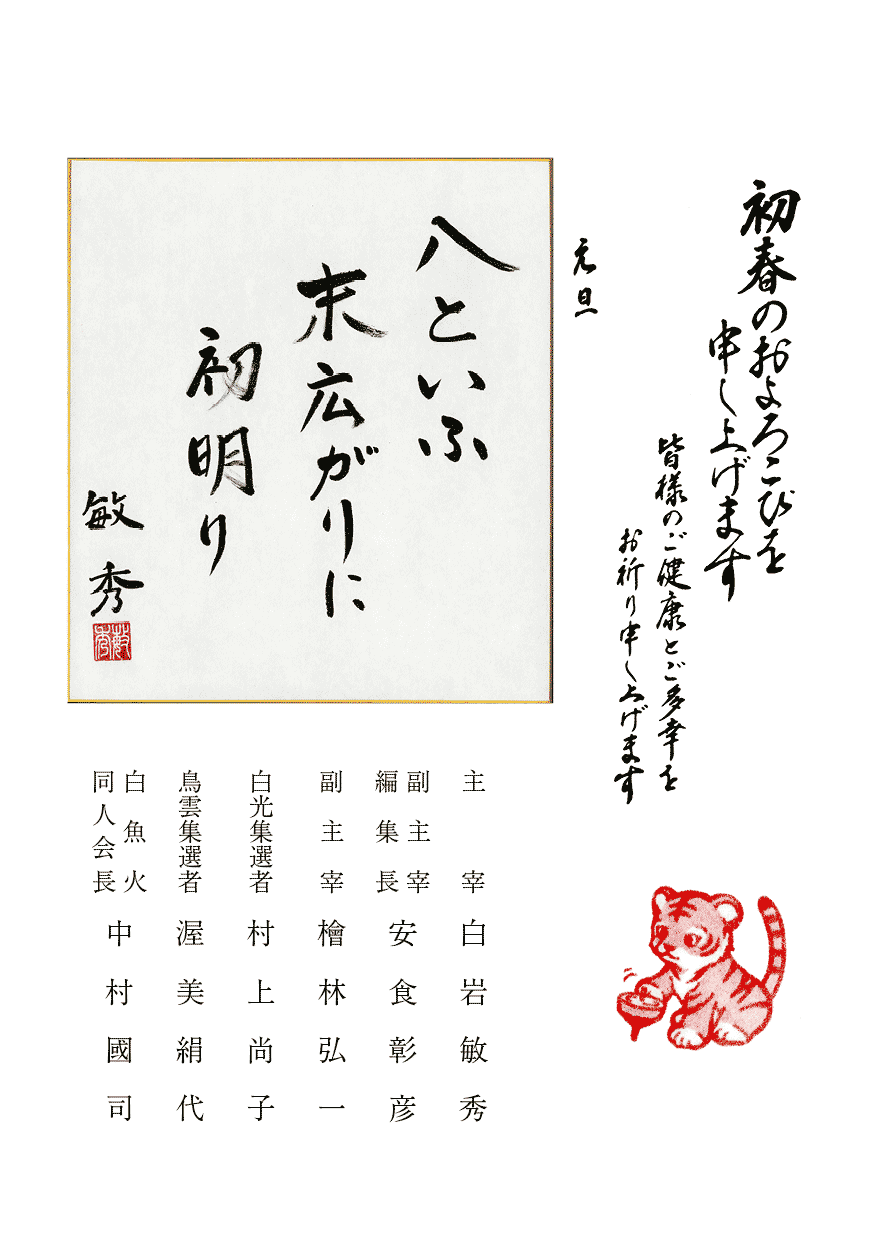 初春のおよろこびを
申し上げます
皆様のご健康とご多幸を
お祈り申し上げます
元旦
八といふ
末広がりに
初明り
敏秀
敏秀
主宰 白岩敏秀
副主宰
編集長 安食彰彦
副主宰 檜林弘一
白光集選者 村上尚子
鳥雲集選者 渥美絹代
白魚火
同人会長 中村國司